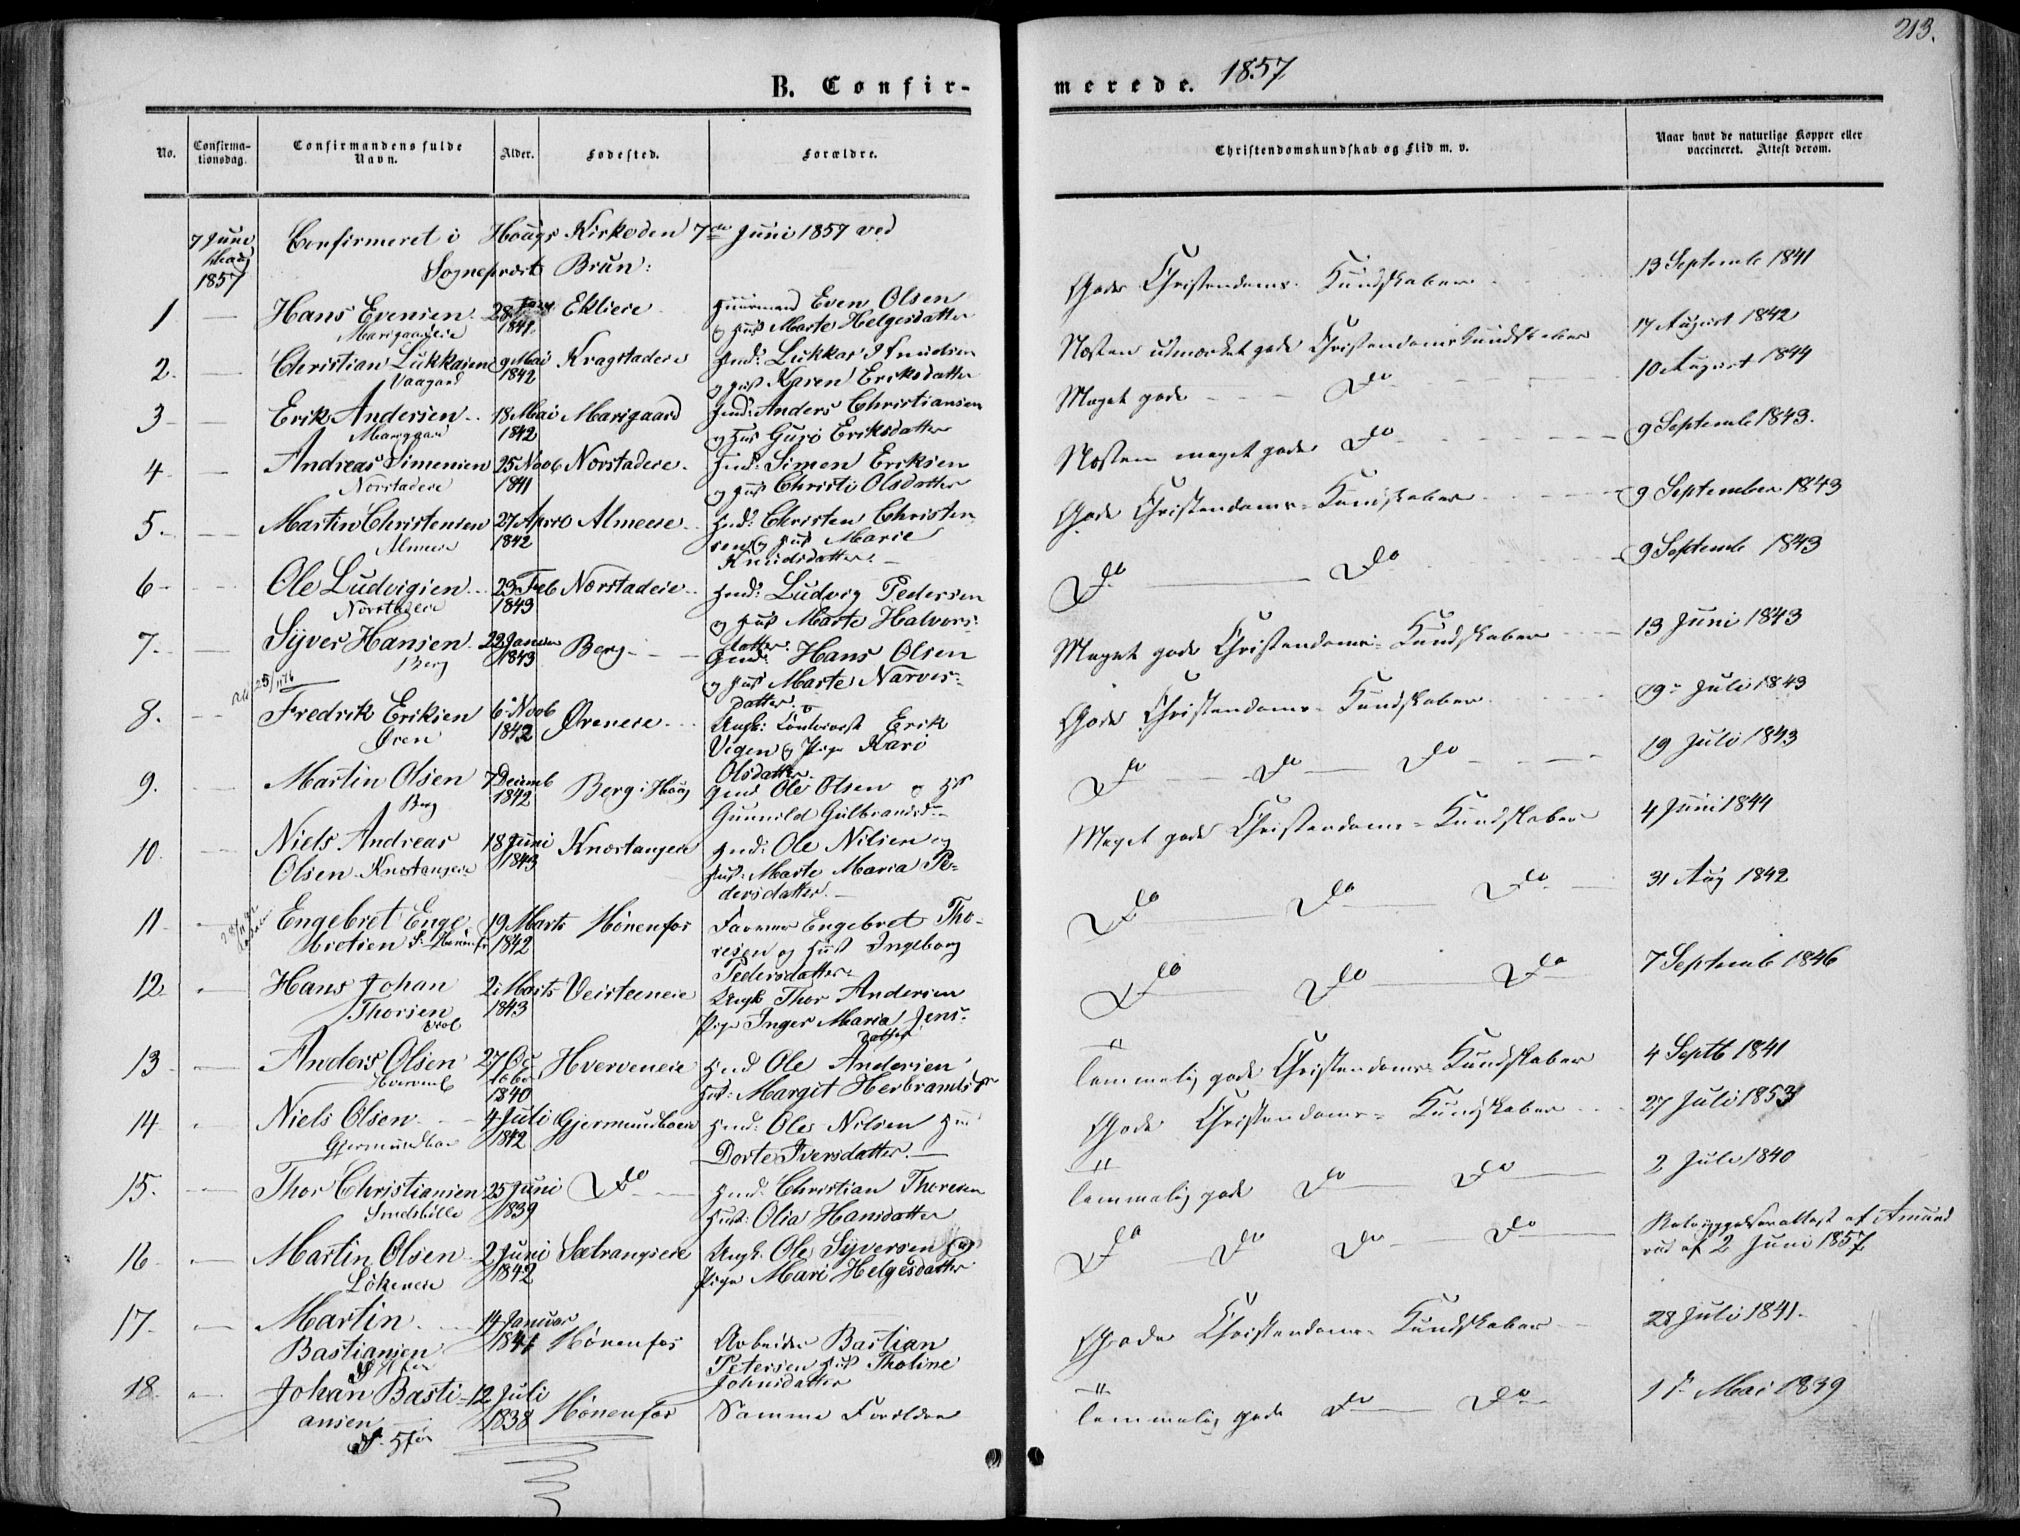 213.
B. Confir-
merede. 1857
No.
Confirma-
tionsdag.
Confirmandens fulde
Navn.
Alder.
Fødested.
Forældre.
Christendomskundskab og Flid m. v.
Naar havt de naturlige Kopper eller
vaccineret. Attest derom.
7 Juni
Haug
1857
Confirmeret i Haugs Kirke den 7de Juni 1857 ved
Sogneprest Brun:
1 Hans Evensen 28 1841 Eklieie Huusmand Even Olsen
Marigaardeie og Hust Marte Helgesdatter
Gode Christendoms-Kundskaber 13 Septemb 1841
2. Christian Lukkasen 9 Mai 1842 Kragstadeie Hmd: Lukkas Knudsen
Vaagaard og Hust Karen Eriksdatter
Næsten utmærket gode Christendomskundskaber 17 August 1842
3 Erik Andersen 18 Mai 1842 Marigaard Hmd: Anders Christiansen
Mariggard og Hus Guri Eriksdatter
Meget gode Do 10 August 1844
4 Andreas Simensen 25 Novb 1841 Norstadeie Hmd: Simen Eriksen
Norstadeie og Hust Christi Olsdatter
Næsten meget gode Do 9 Septemb 1843.
5. Martin Christensen 27 April 1842 Almeeie Hmd: Christen Christen
Almeie sen og Hust Marie
Knudsdatter
Gode Christendoms-Kundskaber 9 September 1843
6 Ole Ludvigsen 23 Feb 1843 Norstadeie Hmd: Ludvig Pedersen
Norstadeie og Hust Marte Halvors-
datter
Do Do 9 Septemb 1843
7. Syver Hansen 22 Januar 1843 Berg Gmd: Hans Olsen
Berg og Hust Marte Narves-
datter
Meget gode Christendoms-Kundskaber 13 Juni 1843
8. Fredrik Eriksen 6 Novb 1842 Øreneie Ungk: Erik
Øren Vegen og Pige Kari
Olsdatter
Gode Christendoms-Kundskaber 19 Juli 1843
9. Martin Olsen 7 Decemb 1842 Berg i Haug Gmd Ole Olsen og H
Berg Gunnild Gulbrandsd
Do Do Do 19 Juli 1843
10. Niels Andreas 18 Juni 1843 Knostangeie Hmd: Ole Nilsen og
Olsen Knostangeie Hust: Marte Maria Pe-
dersdatter
Meget gode Christendoms-Kundskaber 4 Juni 1844
11 Engebret Enge 19 Marts 1842 Hønenfos Farver Engebret Tho-
bretsen resen og Hust Ingeborg
Pedersdatter
Do Do Do 31 Aug 1842
12. Hans Johan 2 Marts 1843 Veisteeneie Ungk Thor Andersen
Thorsen Pige Inger Maria Jens-
datter
Do Do Do 7 Septemb 1846
13 Anders Olsen 27 Oc tober 1840 Hverveneie Hmd Ole Andersen
Hust: Margit Herbrandsdr
Temmelig gode Christendoms Kundskaber 4 Septb 1841
14 Niels Olsen 4 Juli 1842 Gjermundboeie Hmd: Ole Nilsen
Gjermundboe Dorte Iversdatter
Gode Christendoms-Kundskaber 27 Juli 1853
15. Thor Christiansen 25 Juni 1839 Do Hmd. Christian Thoresen
Hust: Olia Hansdatter
Temmelig gode Do Do 2 Juli 1840
16 Martin Olsen 2 Juni 1842 Sætrangseie Ungk. Ole Syversen og
Lökeneie Pige Mari Helgesdatter
Do Do Do Do Revaccinationsattest af Amund
rud af 2 Juni 1857
17. Martin 14 Januar 1841 Hønenfos Arbeider Bastian
Bastiansen Petersen Hust Tholine
Johnsdatter
Gode Christendoms-Kundskaber 28 Juli 1841.
18. Johan Basti- 12 Juli 1838 Hønenfos Samme Forældre
ansen
Temmelig gode Do Do Mai 1839